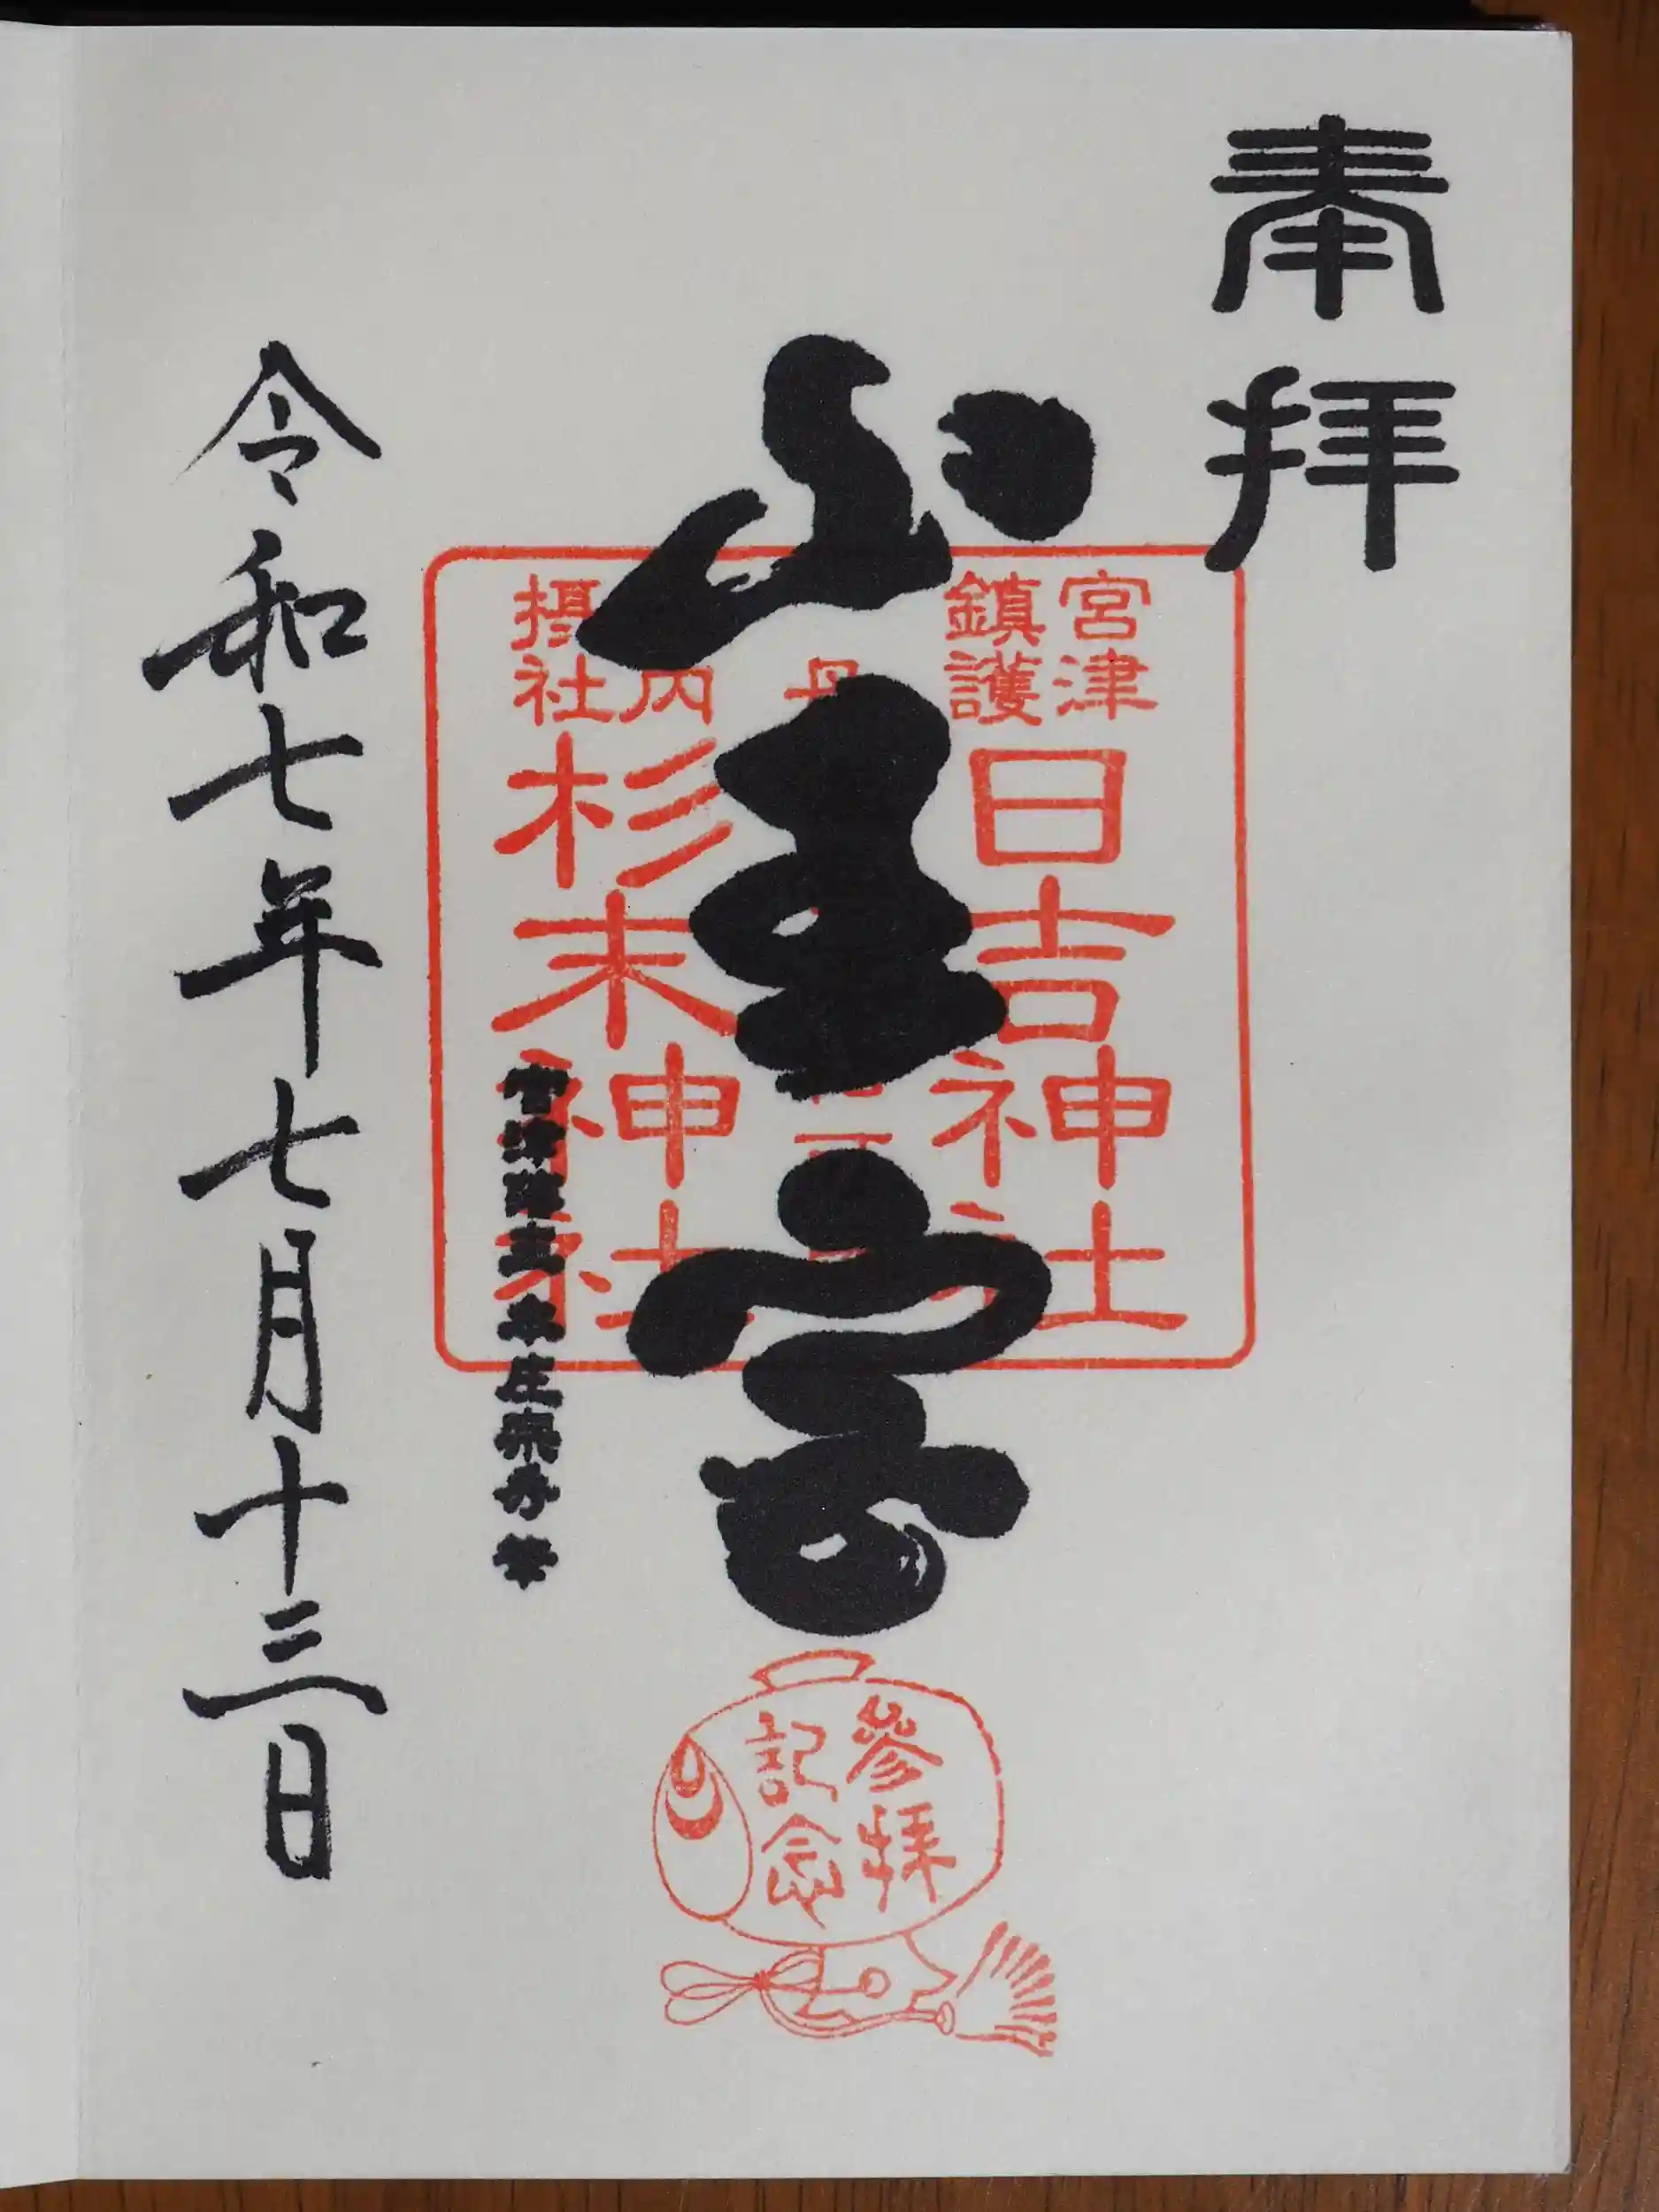 奉拝
宮津
鎮護
日吉神社
丹
山王宮
内
摂社
杉末神社
宮津藩主 本庄宗秀 筆
令和七年七月十三日
參拜
記念